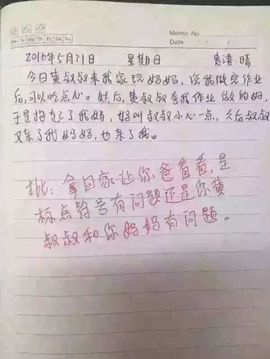 Memo No.
Date / /
2016年5月21日 星期日 晴
今日黄叔叔来我家玩妈妈,说我做完作业
后,可以吃点心。然后,黄叔叔看我作业做的好,
叔叔小心一点,
又亲了我妈妈,也亲了我。
批:拿回家让你爸看看,是
标点符号有问题还是你黄
叔叔和你妈妈有问题。